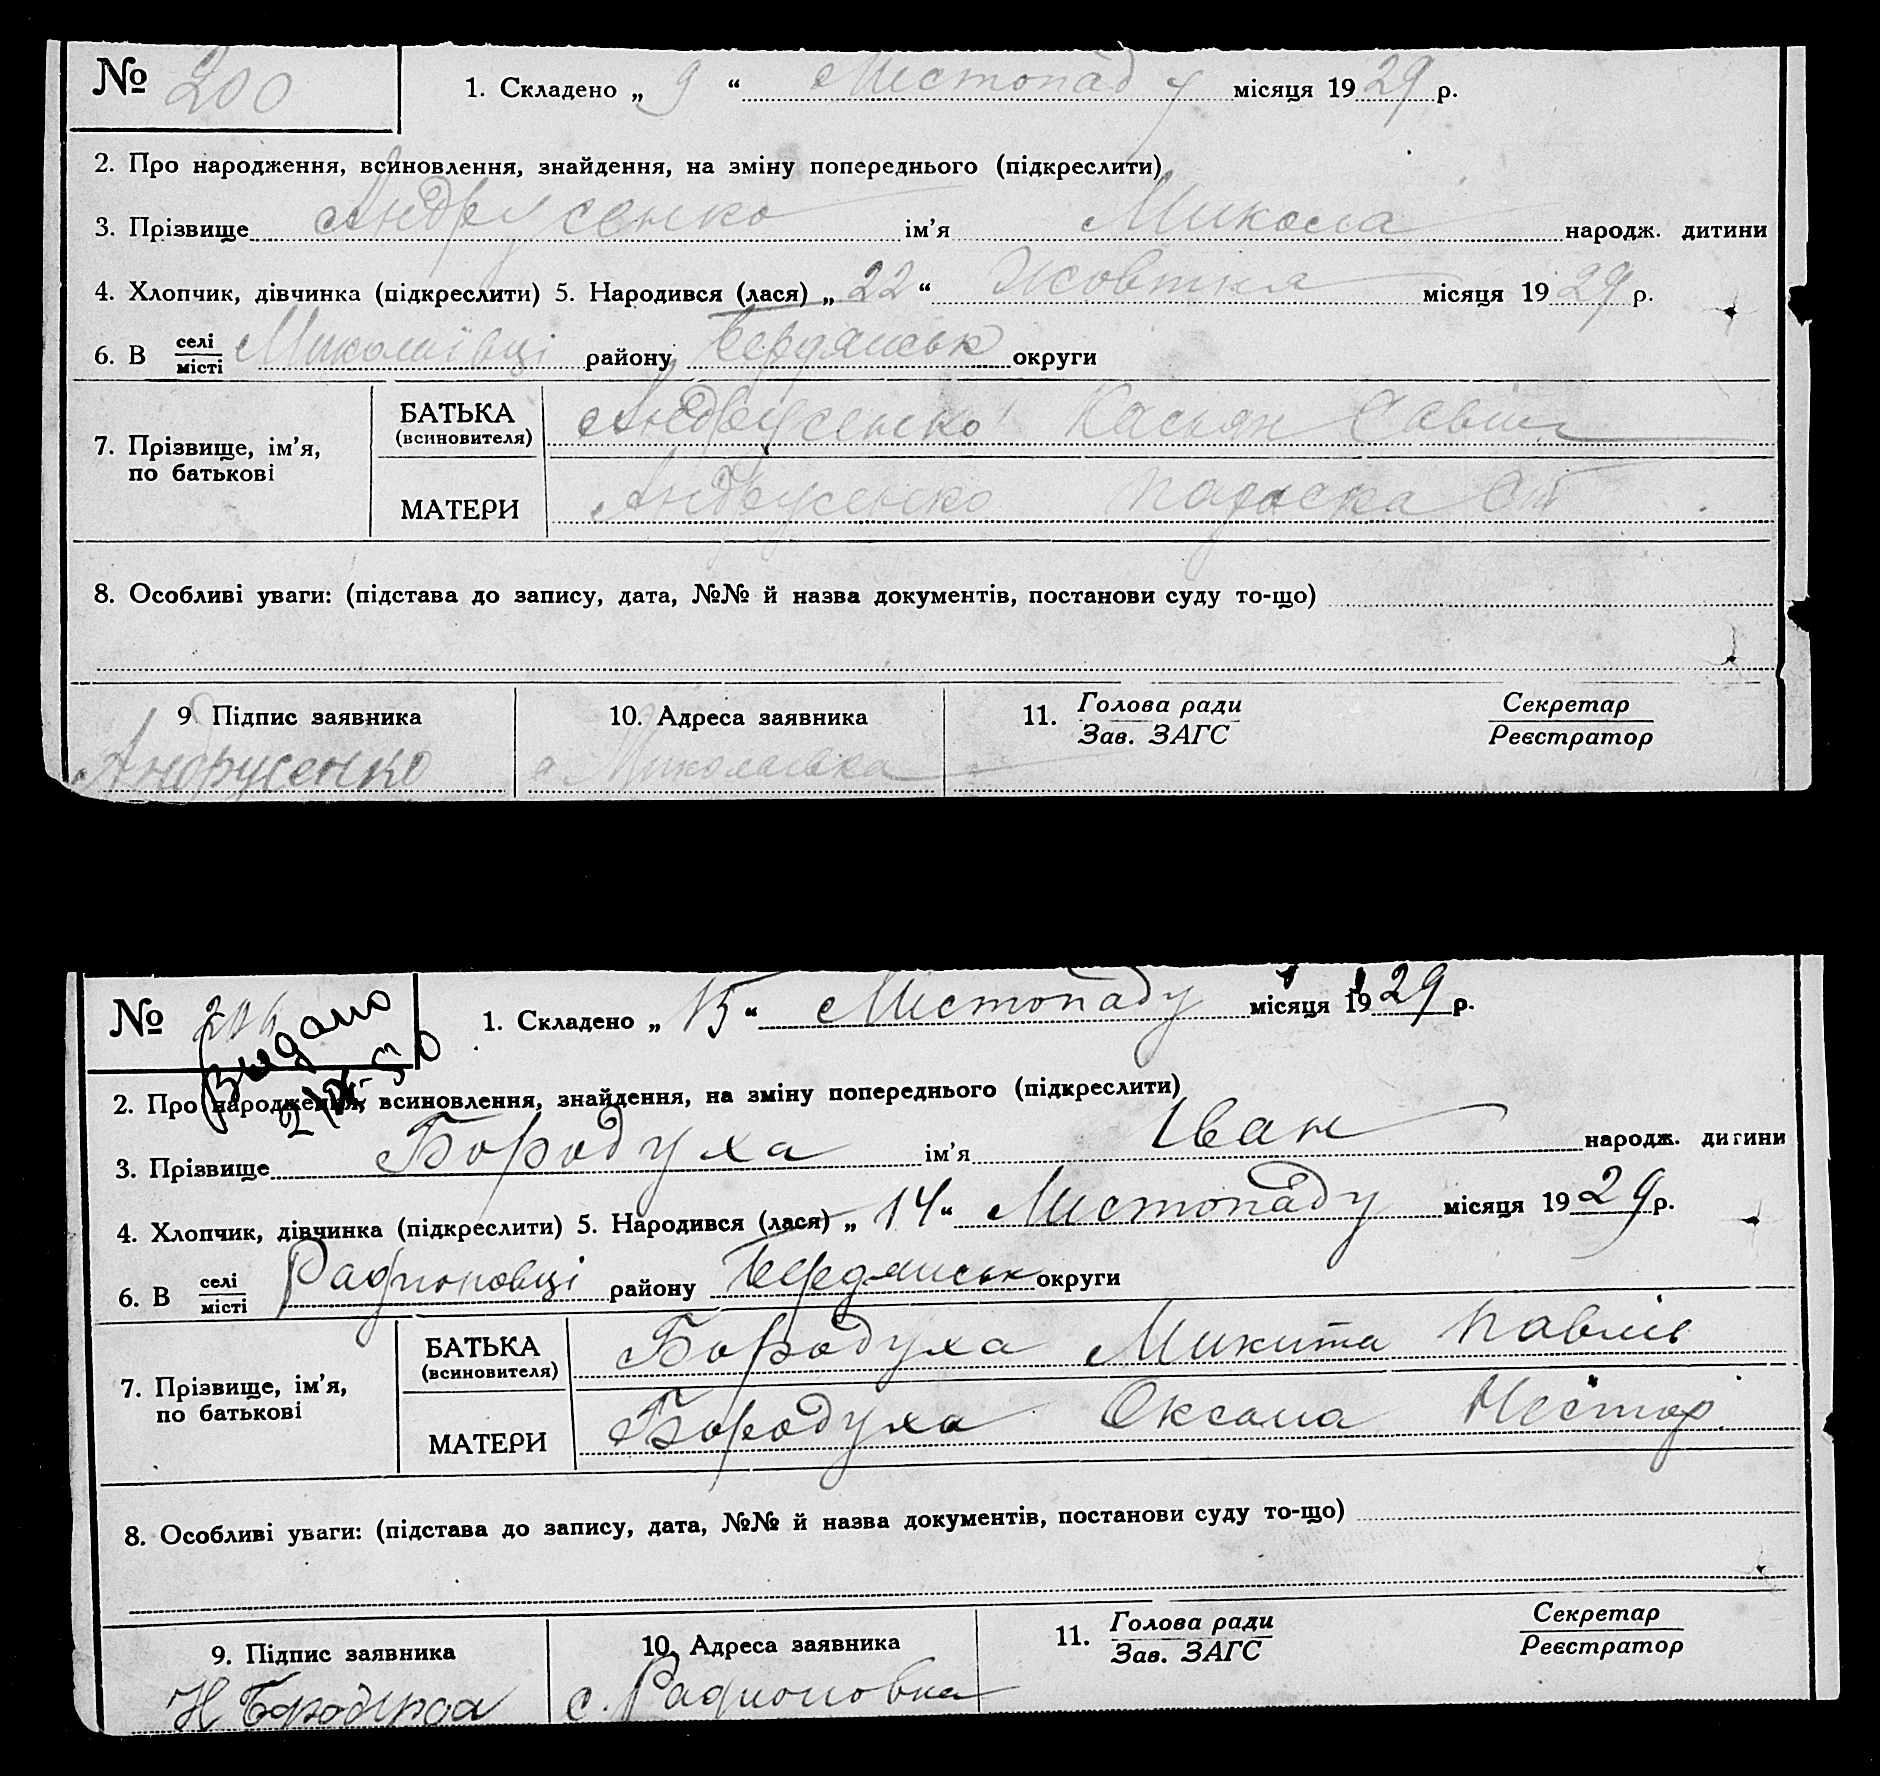 № 200 1. Складено „ 9 “ Листопаду місяця 1929 р.
2. Про народження, всиновлення, знайдення, на зміну попереднього (підкреслити)
3. Прізвище Андрусенко ім’я Микола народж. дитини
4. Хлопчик, дівчинка (підкреслити) 5. Народився (лася) „ 22 “ Жовтня місяця 1929 р.
6. В селі/місті Миколаївці району Бердянськ округи
7. Прізвище, ім’я, по батькові
БАТЬКА (всиновителя) Андрусенко Касьян Савич
МАТЕРИ Андрусенко Параска
8. Особливі уваги: (підстава до запису, дата, №№ й назва документів, постанови суду то-що)
9 Підпис заявника 10. Адреса заявника 11. Голова ради/Зав. ЗАГС Секретар/Реєстратор
Андрусенко с Миколаївка
№ 1. Складено „ 15 “ Листопаду місяця 1929 р.
Выдано
2. Про народження, всиновлення, знайдення, на зміну попереднього (підкреслити)
3. Прізвище Бородуха ім’я Іван народж. дитини
4. Хлопчик, дівчинка (підкреслити) 5. Народився (лася) „ 14 “ Листопаду місяця 1929 р.
6. В селі/місті Радионовці району Бердянськ округи
7. Прізвище, ім’я, по батькові
БАТЬКА (всиновителя) Бородуха Микита Павлів
МАТЕРИ Бородуха Оксана Нестор.
8. Особливі уваги: (підстава до запису, дата, №№ й назва документів, постанови суду то-що)
9. Підпис заявника 10. Адреса заявника 11. Голова ради/Зав. ЗАГС Секретар/Реєстратор
с. Радионовка